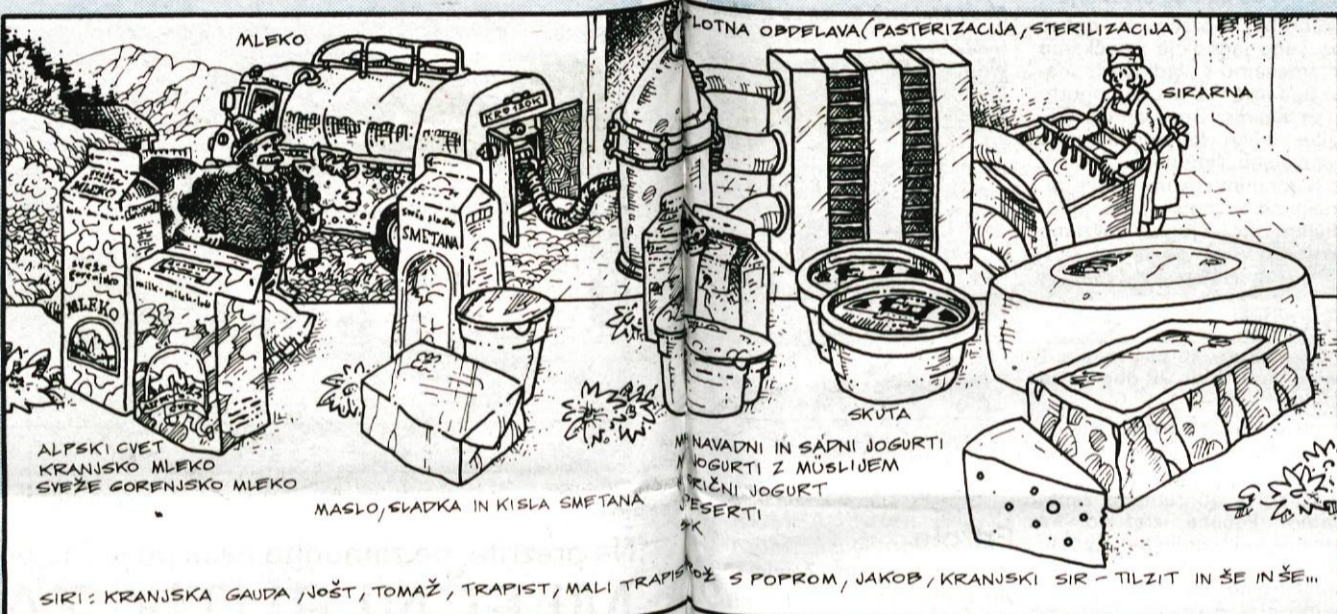 MLEKO
LOTNA OBDELAVA (PASTERIZACIJA, STERILIZACIJA)
SIRARNA
MLEKO
MLEKO
SMETANA
SKUTA
ALPSKI CVET
KRANJSKO MLEKO
SVEŽE GORENJSKO MLEKO
MASLO, SLADKA IN KISLA SMETANA
NAVADNI IN SADNI JOGURTI
JOGURTI Z MÜSLIJEM
JOGURT
DESERTI
SIRI: KRANJSKA GAUDA, JOŠT, TOMAŽ, TRAPIST, MALI TRAPIST
S POPROM, JAKOB, KRANJSKI SIR - TILZIT IN ŠE IN ŠE...